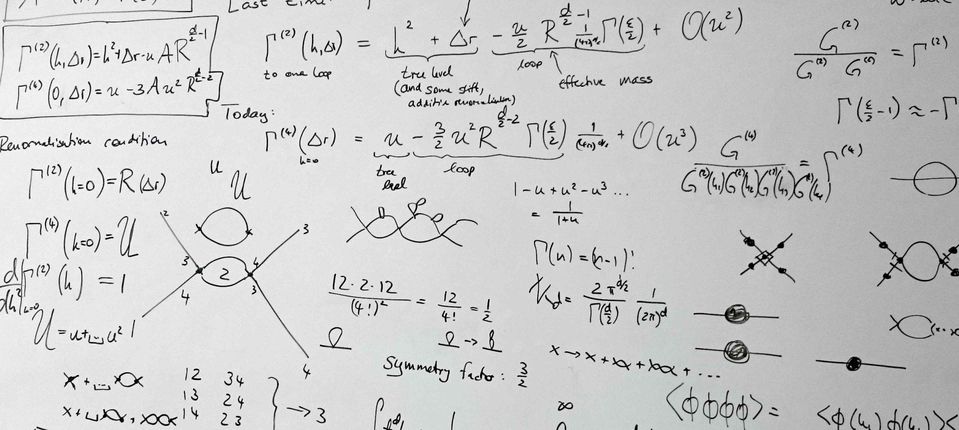 Last time:
Γ^(2)(k,Δr) = k² + Δr - u A R^(d/2-1)
Γ^(4)(0,Δr) = u - 3Au² R^(d/2-2)
Γ^(2)(k,Δr) = k² + Δr - u/2 R^(d/2-1) 1/(4π)^(d/2) Γ(ε/2) + O(u²)
to one loop
tree level
(and some shift,
additive renormalisation)
loop
effective mass
G^(2) / G^(2) G^(2) = Γ^(2)
Γ(ε/2 -1) ≈ -Γ
Today:
Γ^(4)(Δr) = u - 3/2 u² R^(d/2-2) Γ(ε/2) 1/(4π)^(d/2) + O(u³)
k=0
tree
level
loop
G^(4) / G^(2)(k₁)G^(2)(k₂)G^(2)(k₃)G^(2)(k₄) = Γ^(4)
Renormalisation condition
Γ^(2)(k=0) = R(Δr)
Γ^(4)(k=0) = U
d/dk² |k=0 Γ^(2)(k) = 1
U = u + u²
u U
2 3
3 2 4
4 3
1 4
1 - u + u² - u³ ...
= 1/(1+u)
Γ(n) = (n-1)!
K_d = 2π^(d/2) / Γ(d/2) 1/(2π)^d
12·2·12 / (4!)² = 12/4! = 1/2
Symmetry factor: 3/2
x → x + xx + xxx + ...
12 34
13 24
14 23
→ 3
∞
<ϕϕϕϕ> =
<ϕ(k₁)ϕ(k₂)><